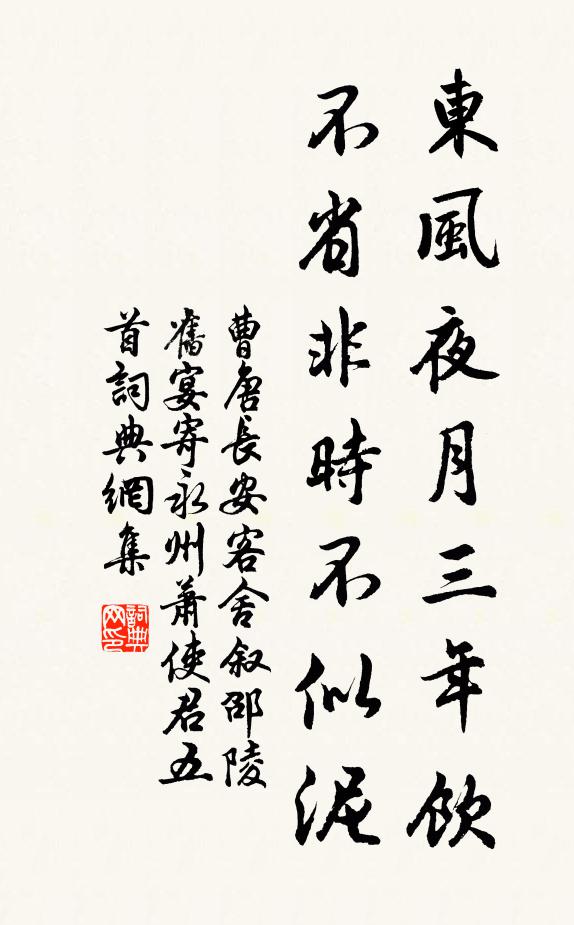 東風夜月三年飲
不省非時不似泥
曹唐長安客舍叙邵陵
舊宴寄永州蕭使君五
首詞典網集
詞典网印